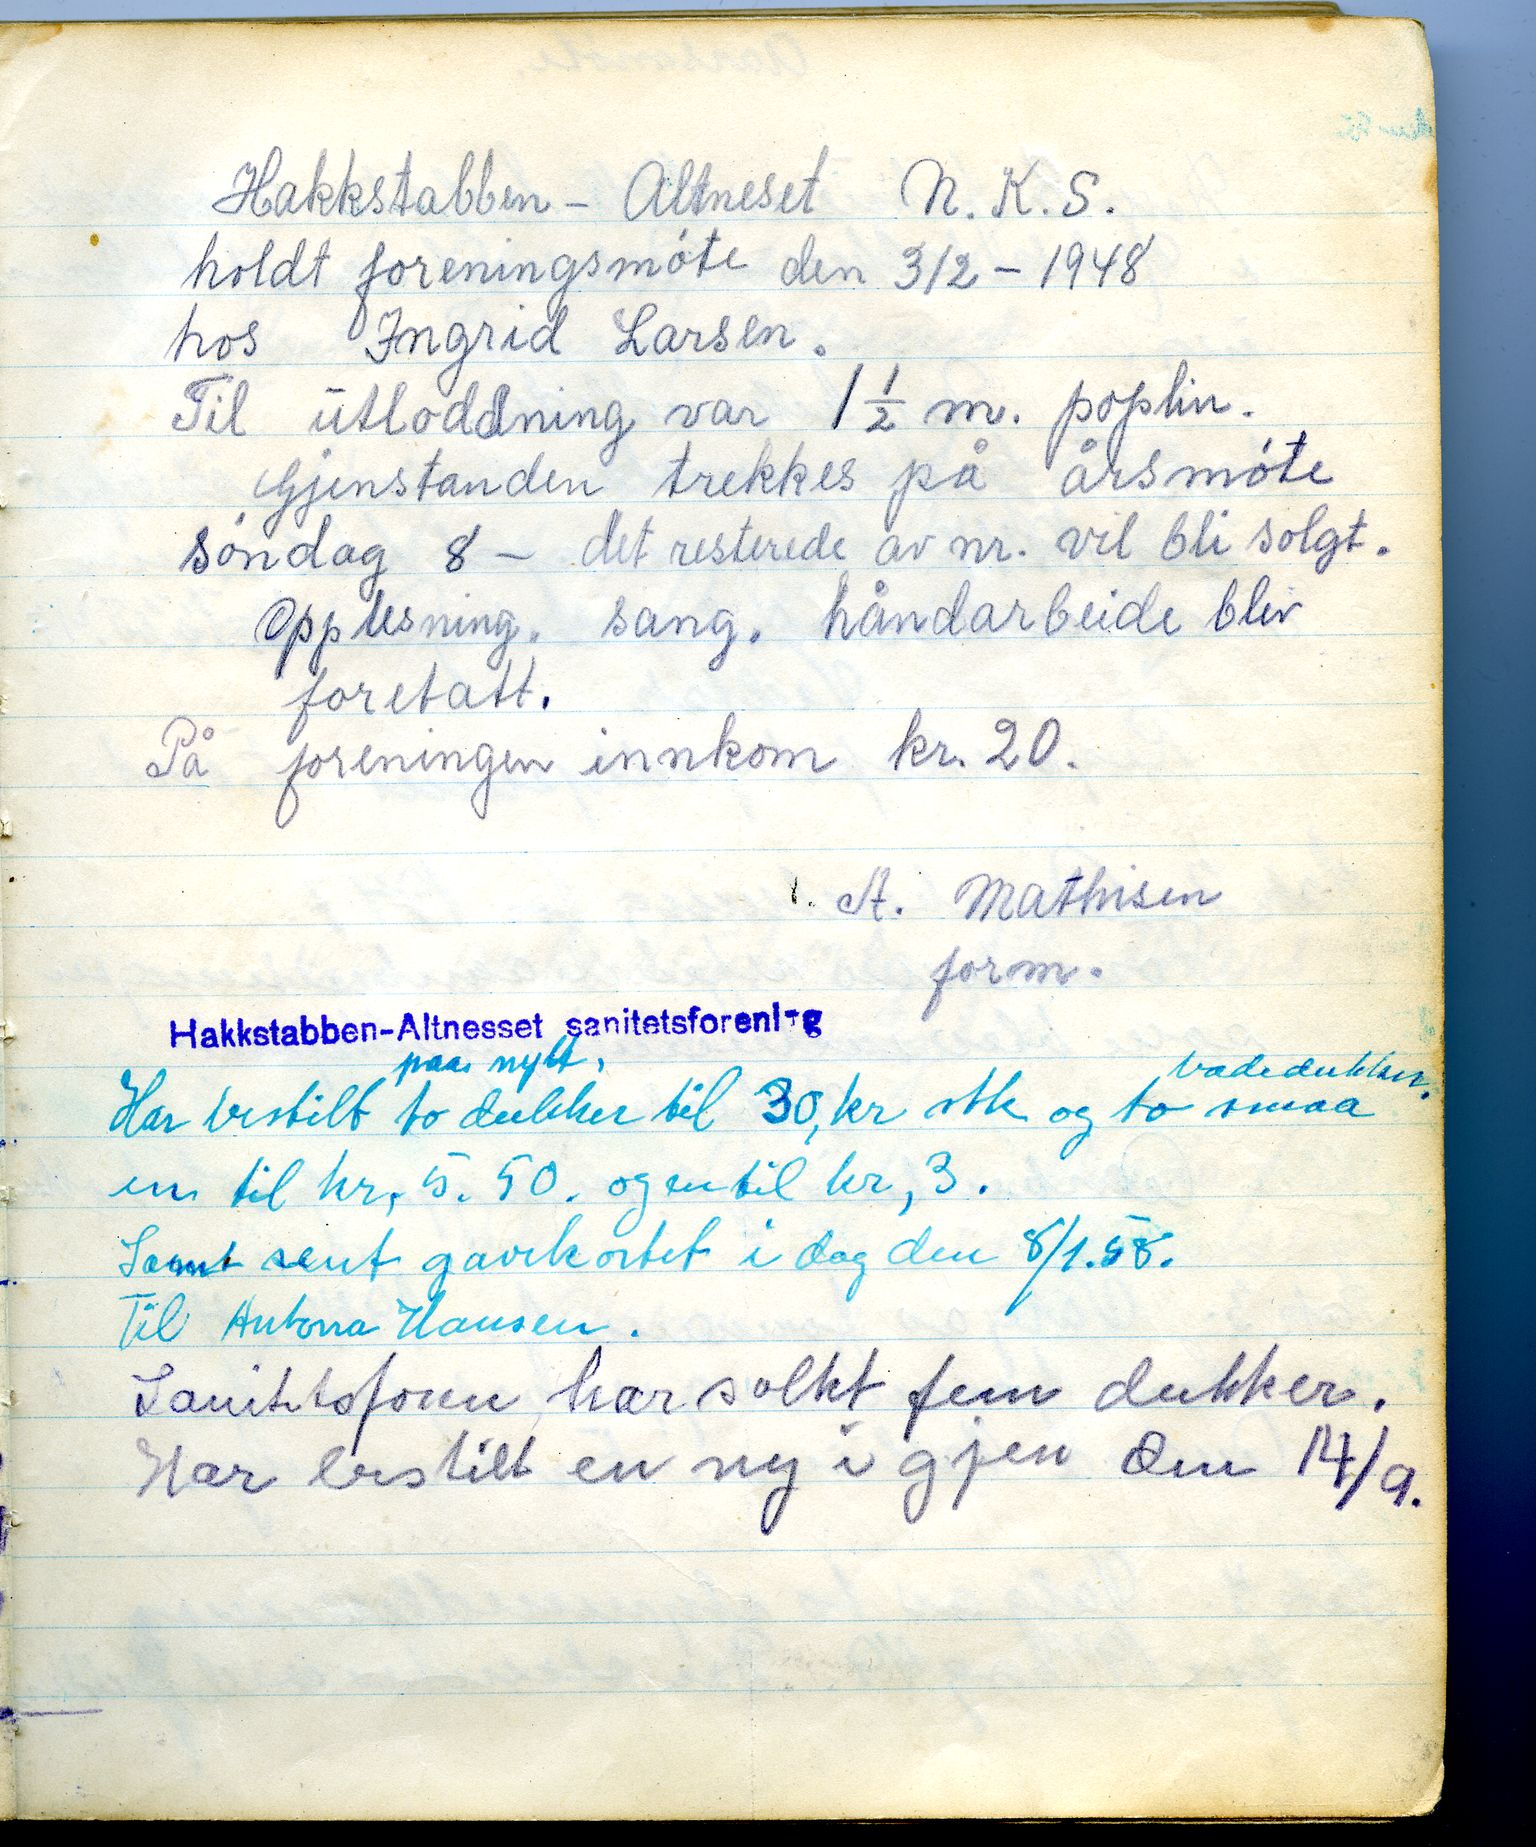 Hakkstabben - Altneset N. K. S.
holdt foreningsmóte den 3/2 - 1948
hos Ingrid Larsen.
Til utloddning var 1 1/2 m. poplin.
Gjenstanden trekkes på årsmóte
sóndag 8 - det resterede av nr. vil bli solgt.
Opplesning. sang. håndarbeide blev
foretatt.
På foreningen innkom kr. 20.
A. Mathisen
form.
Hakkstabben-Altnesset sanitetsforening
paa nytt. badedukker.
Har berstilt to dukker til 30, kr stk og to smaa
en til kr, 5. 50. og en til kr, 3.
Samt sent gavekortet i dag den 8/1. 58.
Til Antona Hansen.
Sanitetsforen har solkt fem dukker.
Har berstilt en ny i gjen den 14/9.